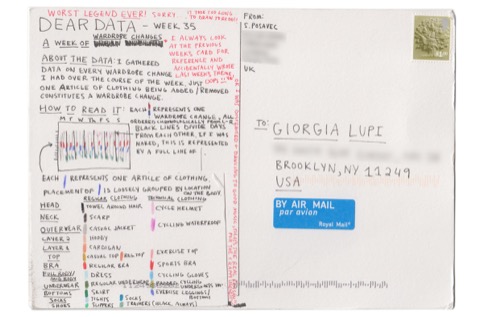 WORST LEGEND EVER! SORRY.
DEAR DATA - WEEK 35
A WEEK OF WARDROBE CHANGES
I ALWAYS LOOK
AT THE PREVIOUS
WEEKS CARD FOR
REFERENCE AND
ACCIDENTALLY WROTE
LAST WEEKS THEME,
OOPS!
ABOUT THE DATA: I GATHERED
DATA ON EVERY WARDROBE CHANGE
I HAD OVER THE COURSE OF THE WEEK. JUST
ONE ARTICLE OF CLOTHING BEING ADDED/REMOVED
CONSTITUTES A WARDROBE CHANGE.
HOW TO READ IT: EACH REPRESENTS ONE
WARDROBE CHANGE, ALL
ORDERED CHRONOLOGICALLY FROM L-R
BLACK LINES DIVIDE DAYS
FROM EACH OTHER. IF I WAS
NAKED, THIS IS REPRESENTED
BY A FULL LINE OF
EACH REPRESENTS ONE ARTICLE OF CLOTHING.
PLACEMENT OF IS LOOSELY GROUPED BY LOCATION
ON THE BODY.
REGULAR CLOTHING
HEAD TOWEL AROUND HAIR CYCLE HELMET
NECK SCARF
OUTERWEAR CASUAL JACKET CYCLING WATERPROOF
LAYER 2 HOODY
LAYER 1 CARDIGAN
TOP CASUAL TOP EXERCISE TOP
BRA REGULAR BRA SPORTS BRA
DRESS CYCLING GLOVES
UNDERWEAR REGULAR UNDERWEAR PADDED CYCLING
BOTTOMS SKIRT EXERCISE LEGGINGS/
BOTTOMS
SOCKS TIGHTS SOCKS
SHOES SLIPPERS TRAINERS (BLACK, ALWAYS)
FROM:
S. POSAVEC
UK
TO: GIORGIA LUPI
BROOKLYN, NY 11249
USA
BY AIR MAIL
par avion
Royal Mail